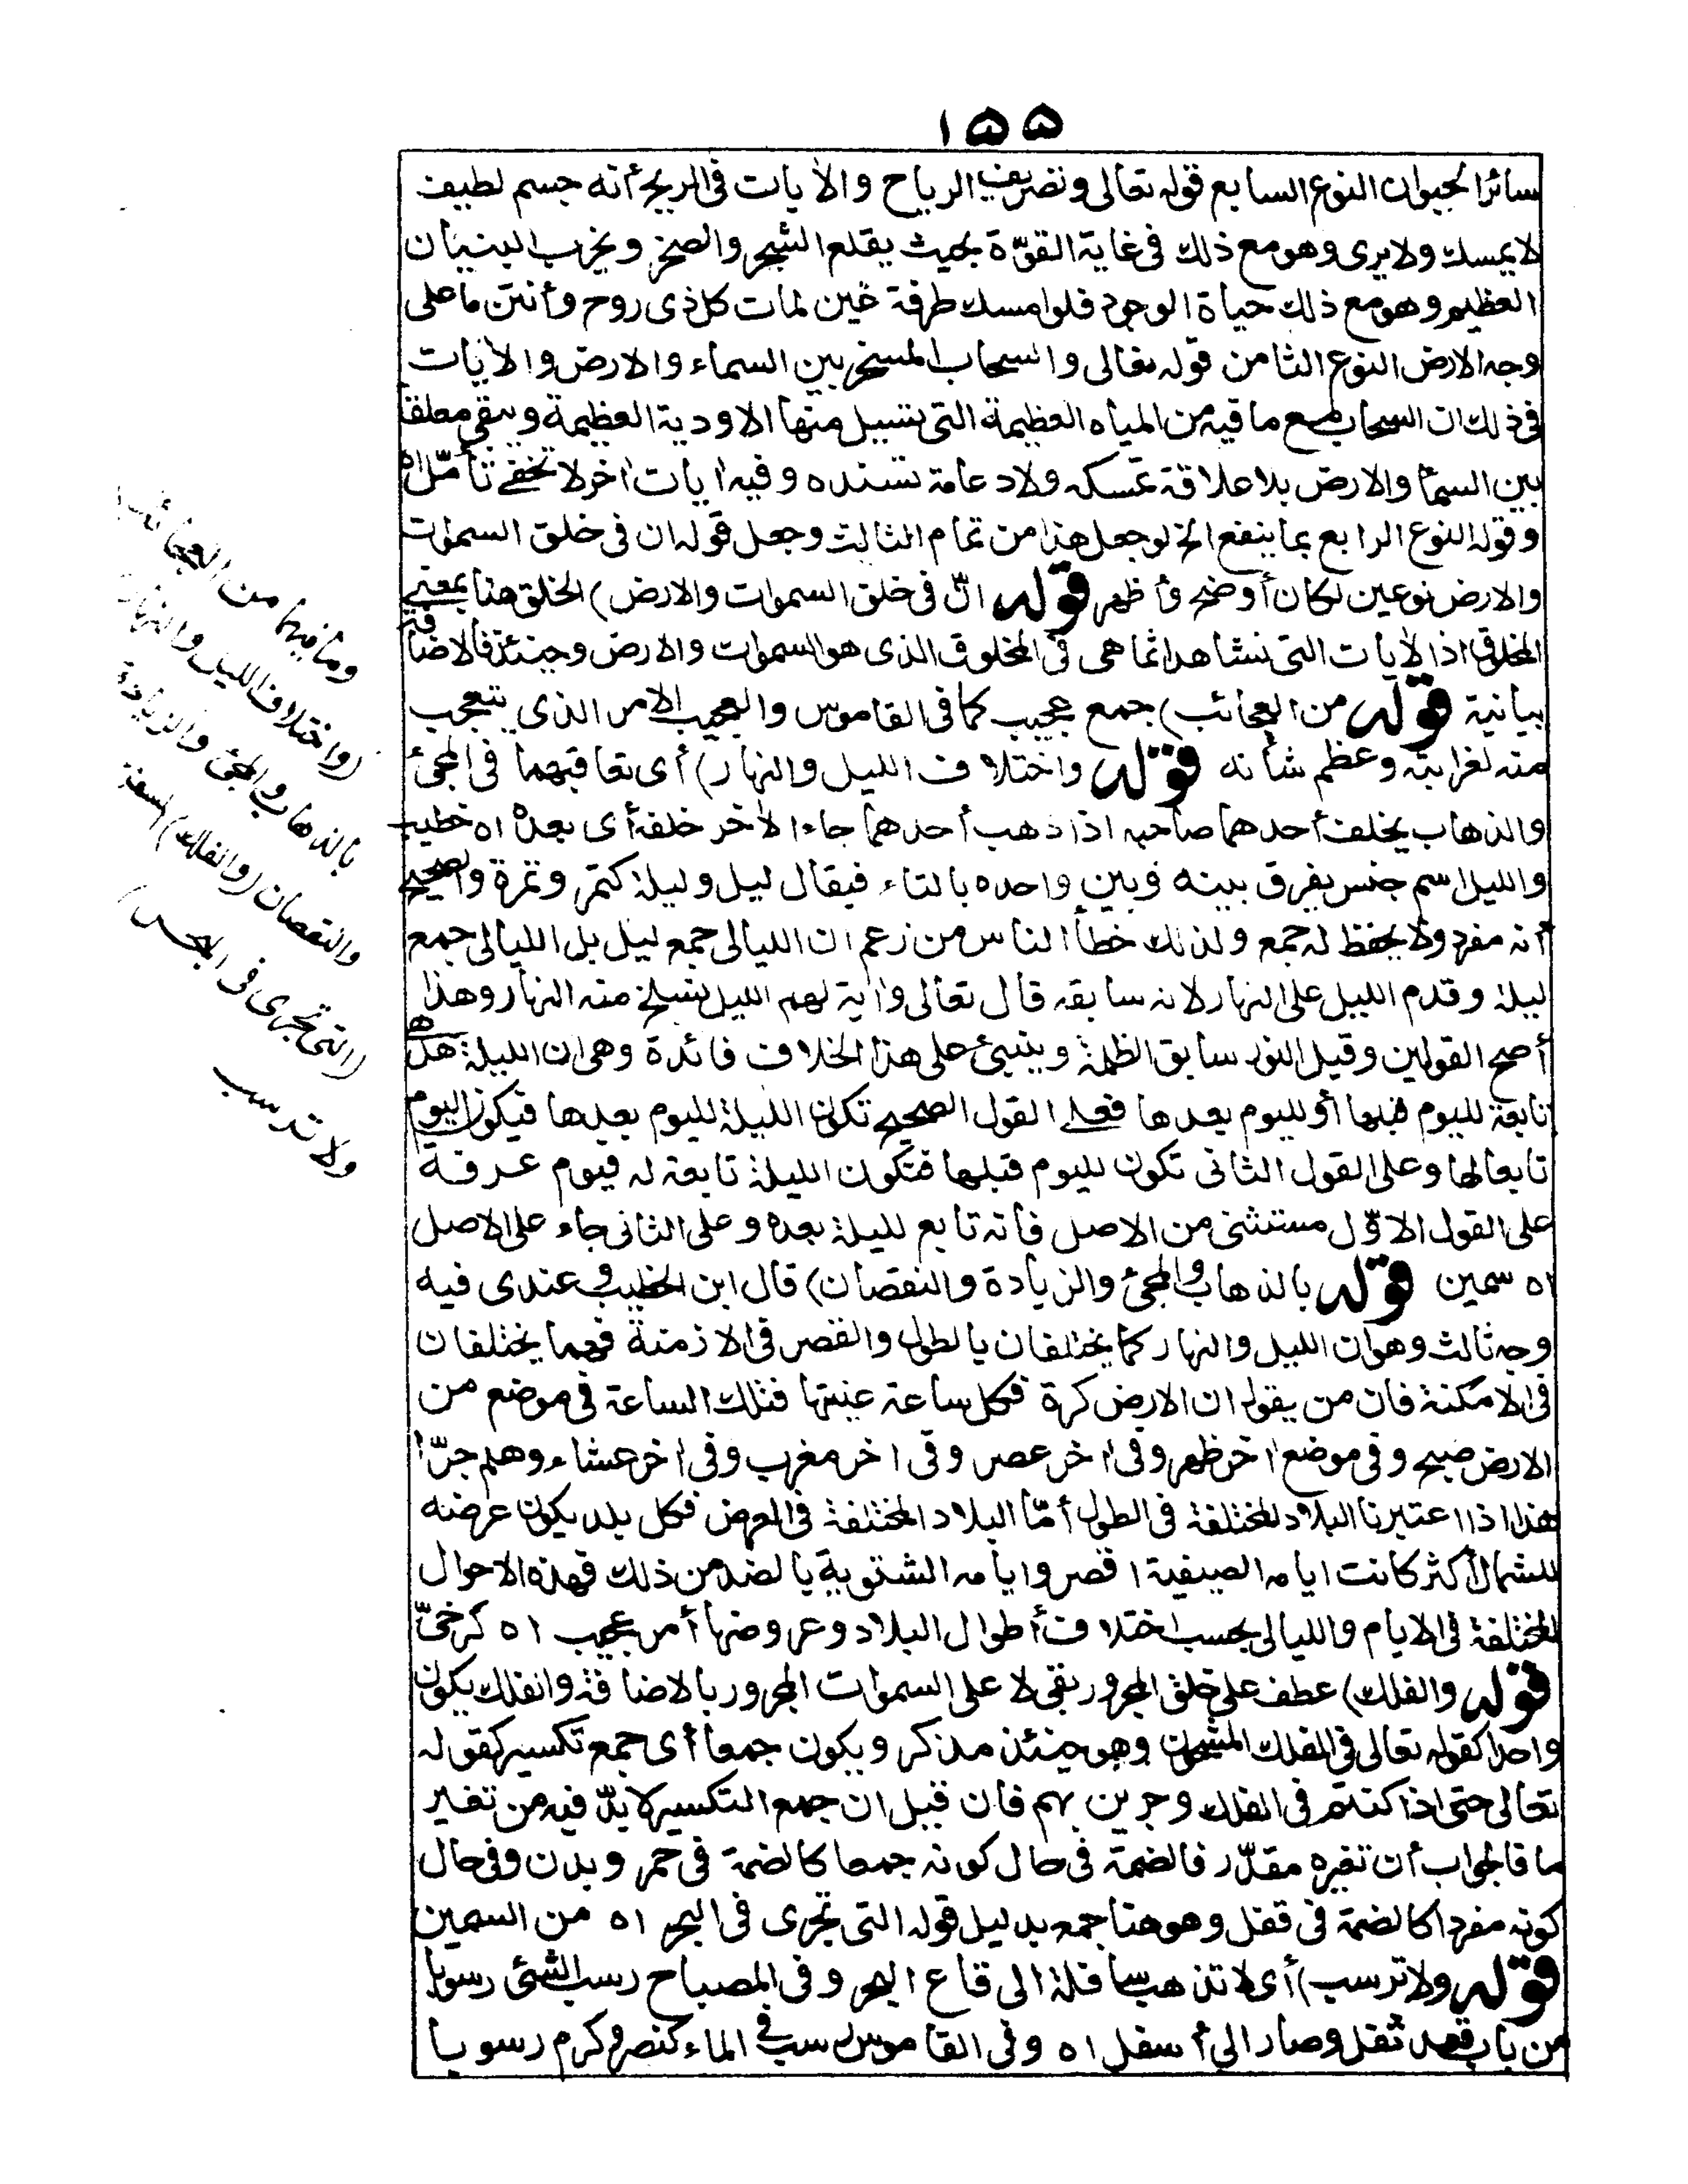 ١٥٥
سائر الحيوان النوع السابع قوله تعالى وتصريف الرياح والأيات فى الريح أنه جسم لطيف
لا يمسك ولا يرى وهو مع ذلك فى غاية القوّة بحيث يقلع الشجر والصخر ويخرب البنيان
العظيم وهو مع ذلك حياة الوجود فلو امسك طرفة عين لمات كل ذى روح وأنتن ما على
وجه الارض النوع الثامن قوله تعالى والسحاب المسخر بين السماء والارض والأيات
فى ذلك ان السحاب مع ما فيه من المياه العظيمة التى تسيل منها الاودية العظيمة ويبقى معلقا
بين السماء والارض بلا علاقة تمسكه ولا دعامة تسنده وفيه ايات اخر لا تخفى تأمّل اه
وقوله النوع الرابع بما ينفع الخ لو جعل هذا من تمام الثالث وجعل قوله ان فى خلق السموات
والارض نوعين لكان أوضح وأظهر قوله انّ فى خلق السموات والارض) الخلق هنا بمعنى
المخلوق اذ الأيات التى نشاهد انما هى فى المخلوق الذى هو السموات والارض وحينئذ فالاضافة
بيانية قوله من العجائب) جمع عجيب كما فى القاموس والعجيب الامر الذى يتعجب
منه لغرابته وعظم شأنه قوله واختلاف الليل والنهار) أى تعاقبهما فى المجئ
والذهاب يخلف أحدهما صاحبه اذا ذهب أحدهما جاء الأخر خلفه أى بعده اه خطيب
والليل اسم جنس يفرق بينه وبين واحده بالتاء فيقال ليل وليلة كتمر وتمرة والصحيح
أنه مفرد ولا يحفظ له جمع ولذلك خطأ الناس من زعم ان الليالى جمع ليل بل الليالى جمع
ليلة وقدم الليل على النهار لانه سابقه قال تعالى وأية لهم الليل نسلخ منه النهار وهذا
أصح القولين وقيل النور سابق الظلمة وينبنى على هذا الخلاف فائدة وهى ان الليلة هل هى
تابعة لليوم قبلها أو لليوم بعدها فعلى القول الصحيح تكون الليلة لليوم بعدها فيكون اليوم
تابعا لها وعلى القول الثانى تكون لليوم قبلها فتكون الليلة تابعة له فيوم عرفة
على القول الاوّل مستثنى من الاصل فانه تابع لليلة بعده وعلى الثانى جاء على الاصل
اه سمين قوله بالذهاب والمجئ والزيادة والنقصان) قال ابن الخطيب وعندى فيه
وجه ثالث وهو ان الليل والنهار كما يختلفان بالطول والقصر فى الازمنة فهما يختلفان
فى الامكنة فان من يقول ان الارض كرة فكل ساعة عينتها فتلك الساعة فى موضع من
الارض صبح وفى موضع اخر ظهر وفى اخر عصر وفى اخر مغرب وفى اخر عشاء وهلم جرّا
هذا اذا اعتبرنا البلاد المختلفة فى الطول أمّا البلاد المختلفة فى العرض فكل بلد يكون عرضه
للشمال أكثر كانت ايامه الصيفية اقصر وايامه الشتوية بالضد من ذلك فهذه الاحوال
المختلفة فى الايام والليالى بحسب اختلاف أطوال البلاد وعروضها أمر عجيب اه كرخىّ
قوله والفلك) عطف على خلق المجرور بفى لا على السموات المجرور بالاضافة والفلك يكون
واحدا كقوله تعالى فى الفلك المشحون وهو حينئذ مذكر ويكون جمعا أى جمع تكسير كقوله
تعالى حتى اذا كنتم فى الفلك وجرين بهم فان قيل ان جمع التكسير لا بدّ فيه من تغير
ما فالجواب أن تغيره مقدّر فالضمة فى حال كونه جمعا كالضمة فى حمر وبدن وفى حال
كونه مفردا كالضمة فى قفل وهو هنا جمع بدليل قوله التى تجرى فى البحر اه من السمين
قوله ولا ترسب) أى لا تذهب سافلة الى قاع البحر وفى المصباح رسب الشئ رسوبا
من باب قعد ثقل وصار الى أسفل اه وفى القاموس رسب فى الماء كنصر وكرم رسوبا
وما فيها من العجائب
(واختلاف الليل والنهار)
بالذهاب والمجئ والزيادة
والنقصان (والفلك) السفن
(التى تجرى فى البحر)
ولا ترسب